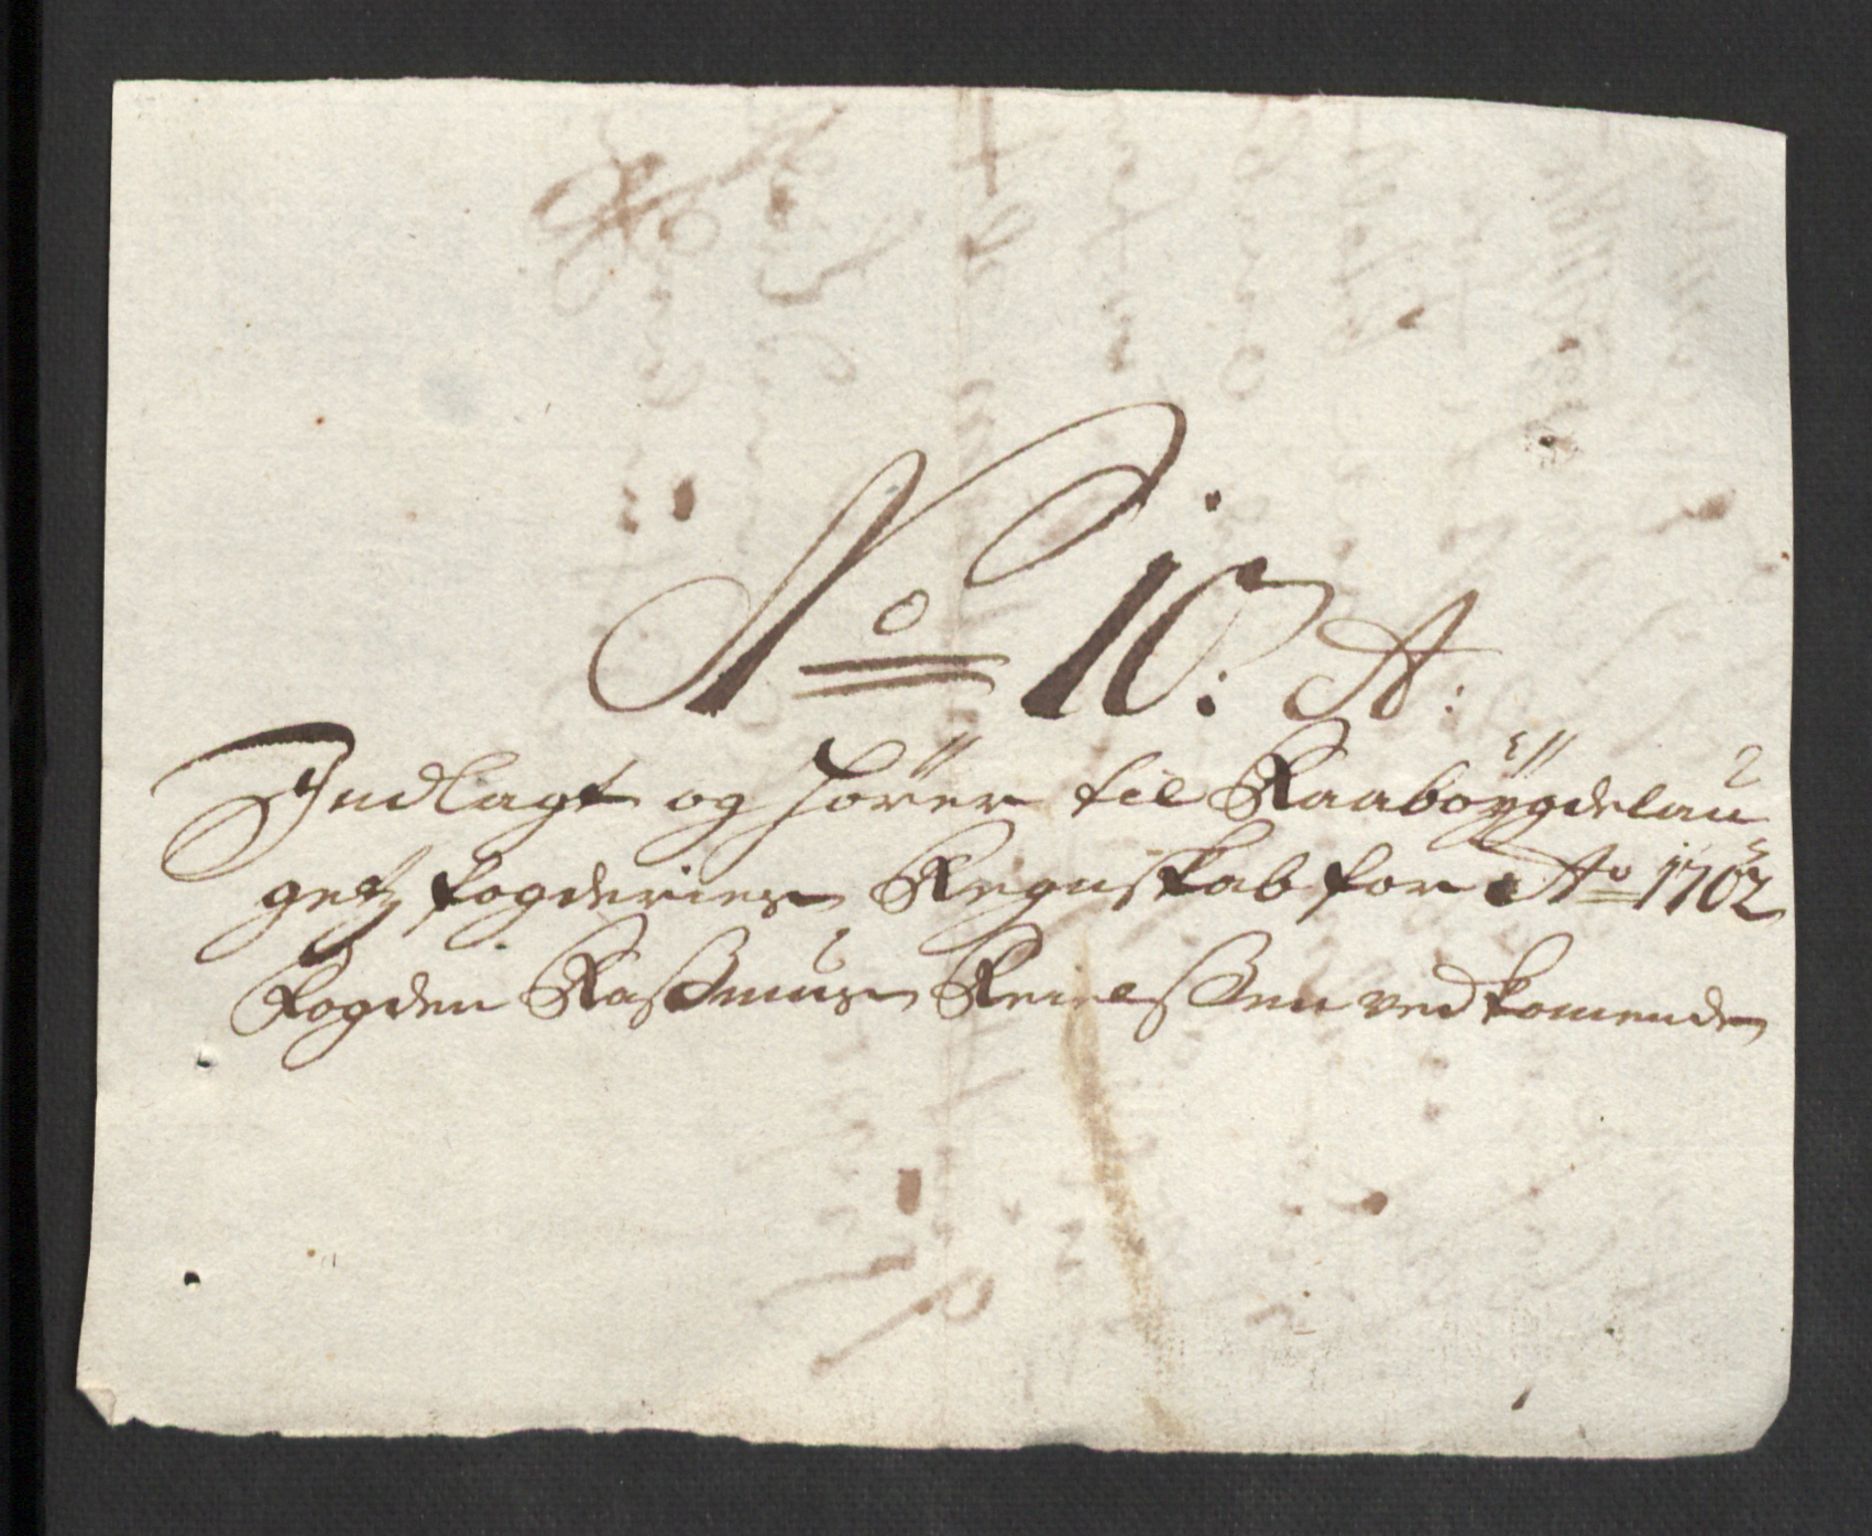 No 10: A:
Indlagt og hörer til Raaböygdelau
getz fogderies Regnskab for Ao 1702
Fogden Rassmus
vedkomende